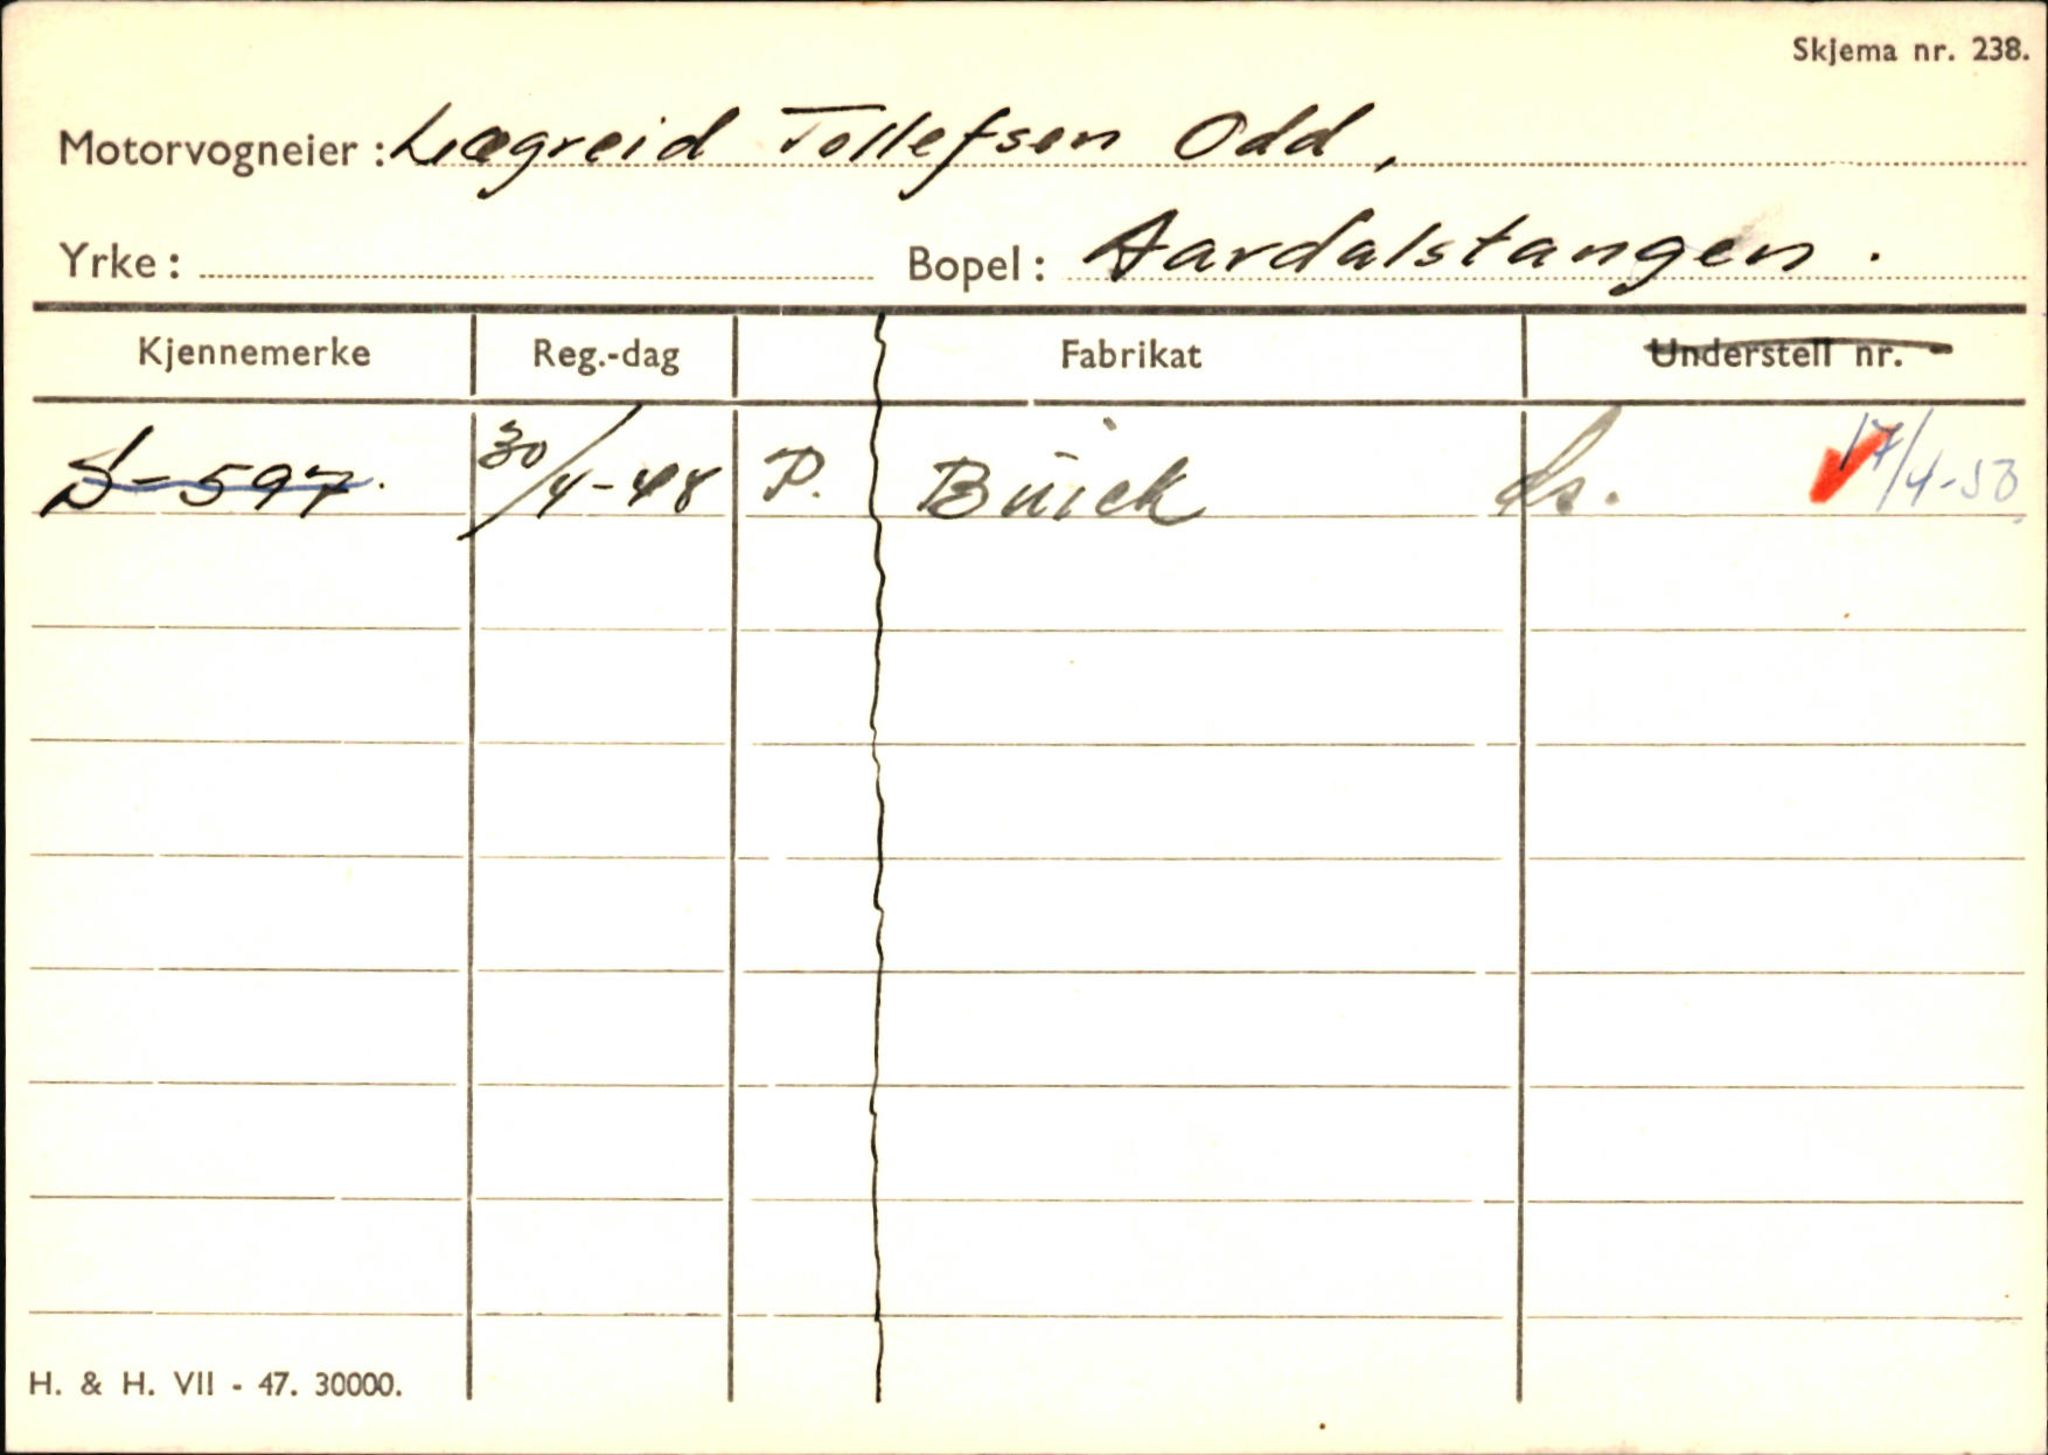 Skjema nr. 238.
Motorvogneier: Lægreid Tollefsen Odd,
Yrke: Bopel: Aardalstangen.
Kjennemerke Reg.-dag Fabrikat Understell nr.
S-597. 30/4-48 P. Buick ds. 17/4-53
H. & H. VII - 47. 30000.